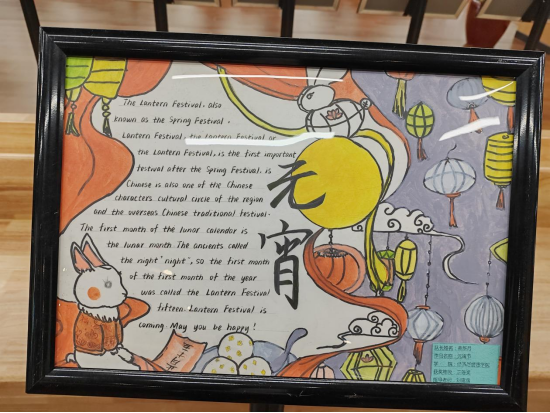 The Lantern Festival, also
known as the Spring Festival,
Lantern Festival, the Lantern Festival or
the Lantern Festival, is the first important
festival after the Spring Festival. is
Chinese is also one of the Chinese
characters cultural circle of the region
and the overseas Chinese traditional festival.
The first month of the lunar calendar is
the lunar month. The ancients called
the night "night", so the first month
of the first month of the year
was called the Lantern Festival
fifteen. Lantern Festival is
coming. May you be happy!
元宵